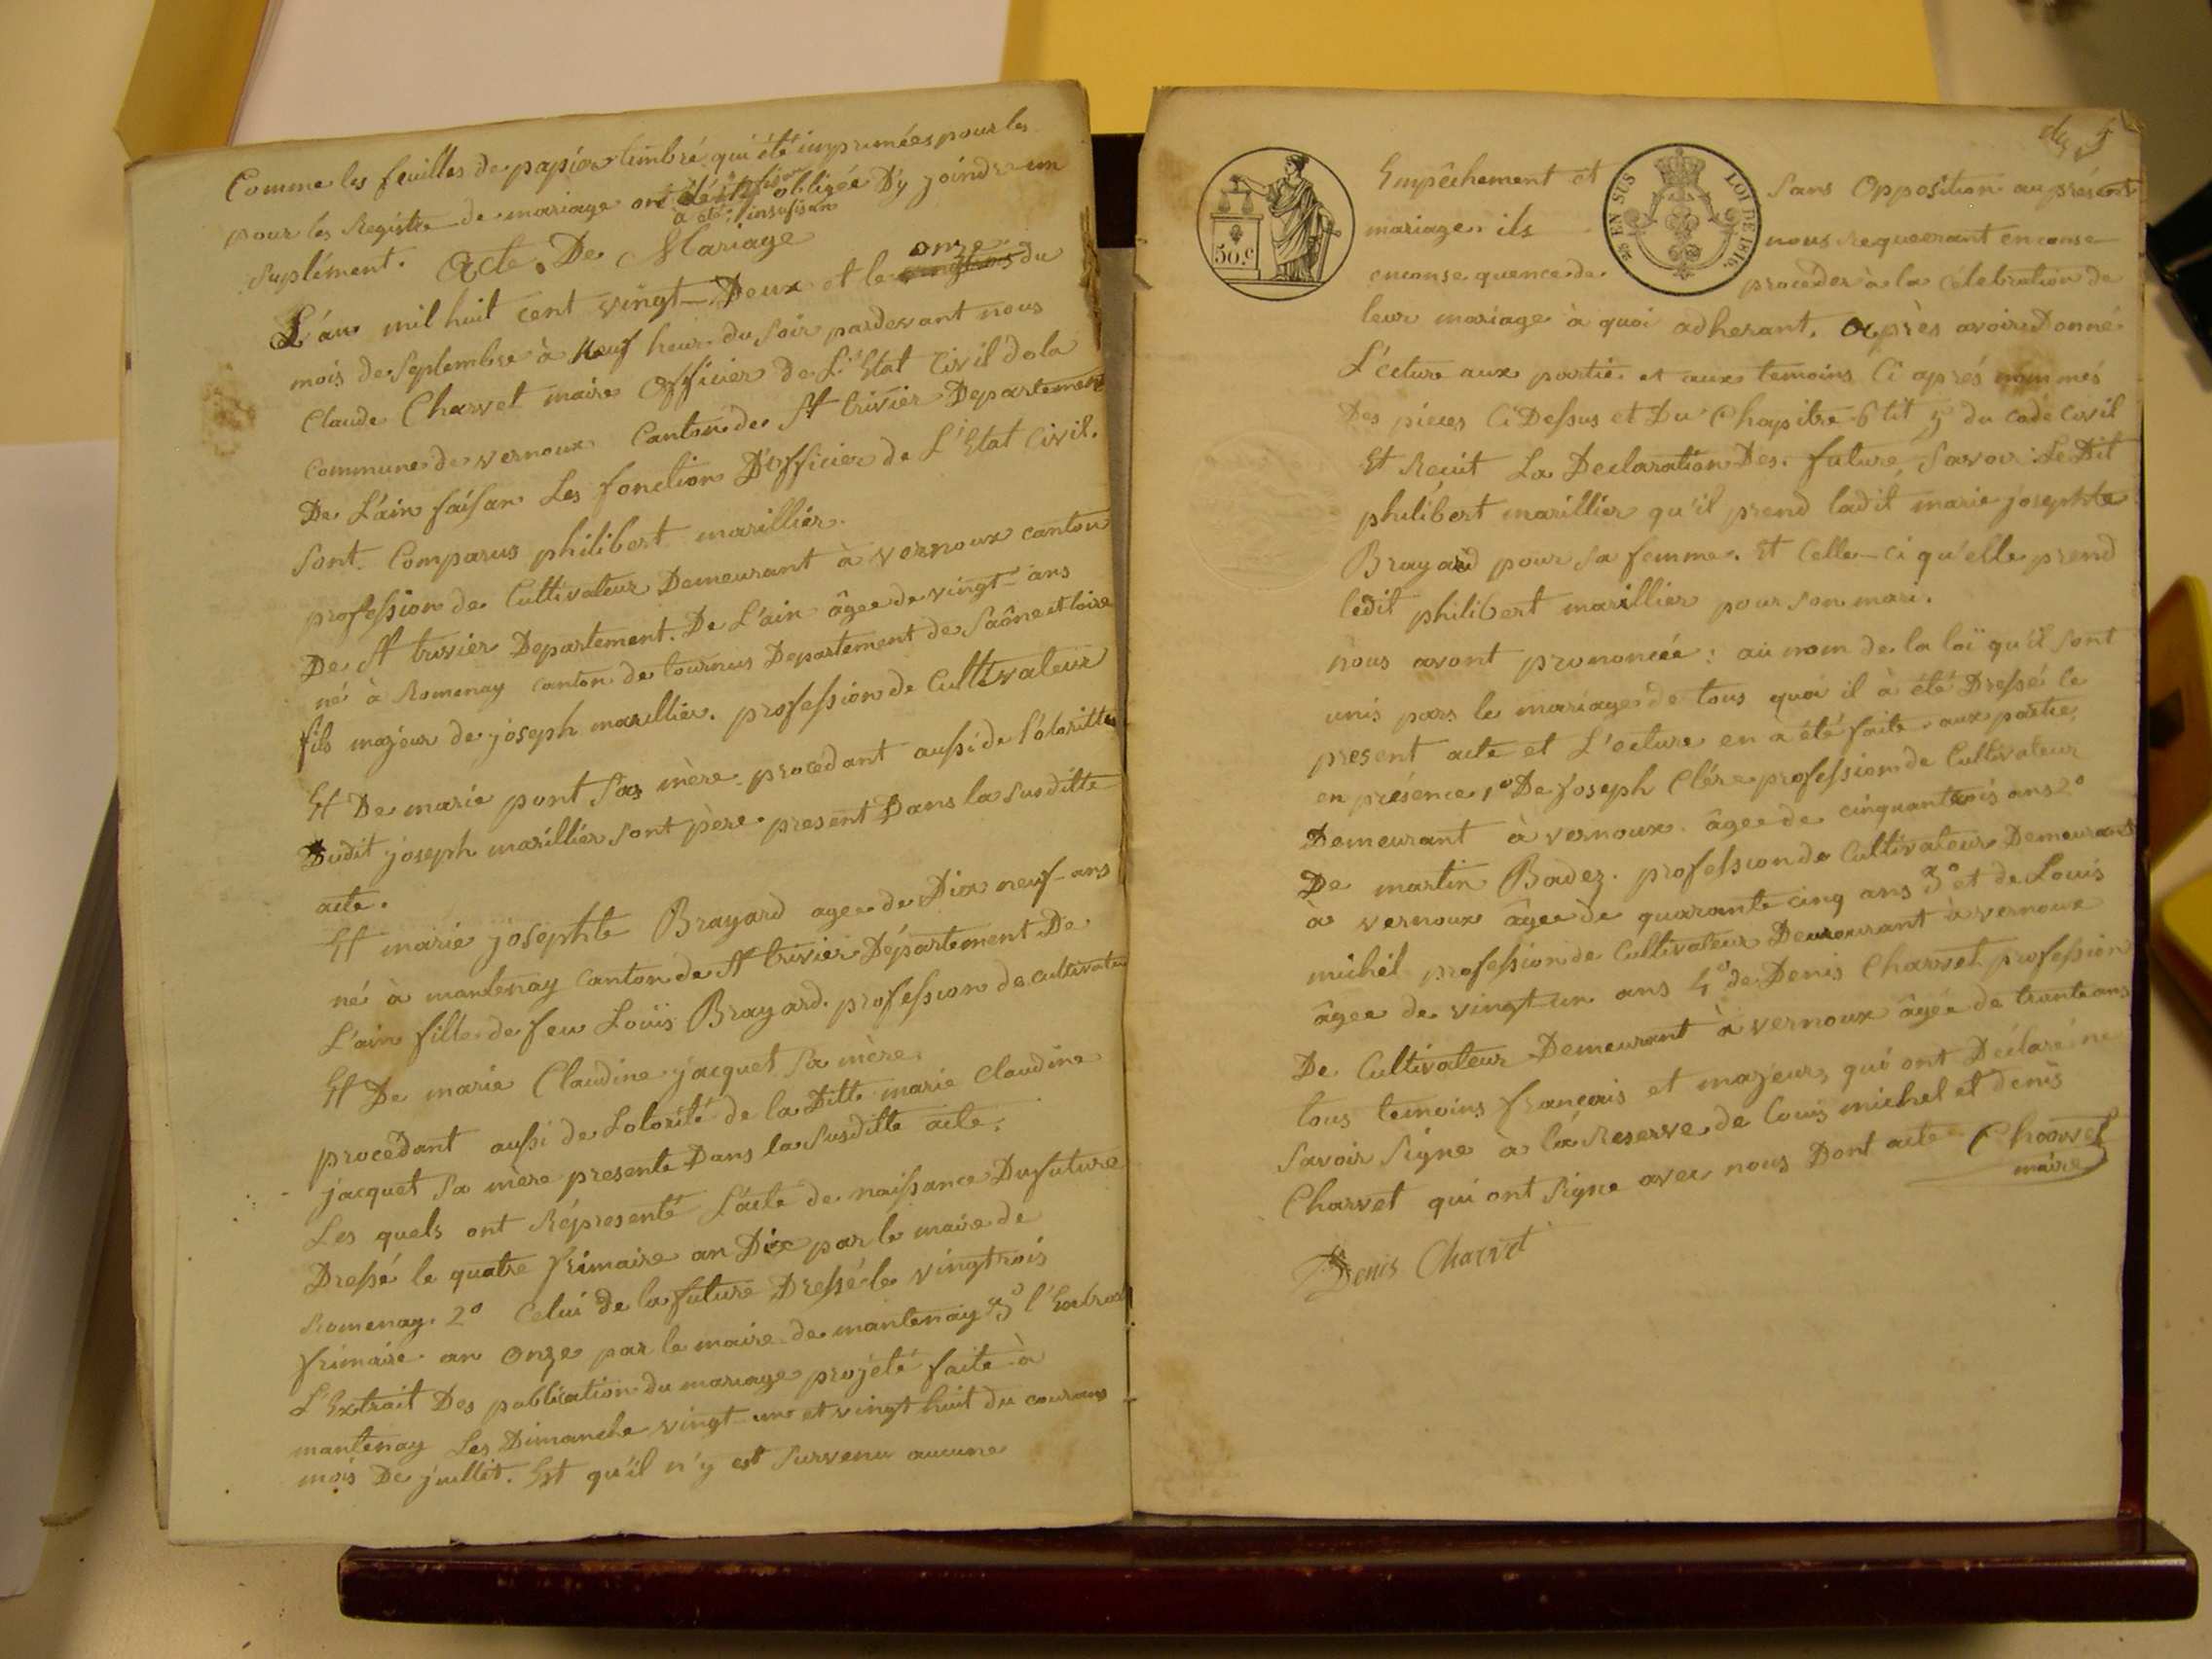 Comme les feuilles de papier timbré qui été imprimées pour les
pour les Registre de mariage ont été obligée D'y joindre un
a été insufisan
Suplément. Acte De Mariage
L'an mil huit cent vingt-Deux et le onze du
mois de Septembre à Neuf heur du Soir pardevant nous
Claude Charvet maire Officier de L'Etat Civil dela
Commune de vernoux Canton de St trivier Departement
De L'ain faisan Les fonction D'Officier de L'Etat Civil.
Sont Comparus philibert marillier.
profession de Cultivateur Demeurant à vernoux canton
De St trivier Departement. De L'ain âgee de vingt-ans
né à Romenay canton de tournus Departement de Saône et loire
fils majeur de joseph marillier. profession de Cultivateur
Et De marie pont Sas mère procedant aussi de l'otoritté
Dudit joseph marillier sont père present Dans la susditte
acte.
Et marie josephte Brayard agee de Dix neuf-ans
né à mantenay canton de St trivier Département De
L'ain fille de feu Louis Brayard. profession de cultivateu
Et De marie Claudine jacquet Sa mère
procedant aussi de Lotorité de la Ditte marie Claudine
jacquet Sa mère presente Dans la susditte acte.
Les quels ont Réprésenté L'acte de naissance Du future
Dressé le quatre frimaire an Dix par le maire de
Romenay. 2° Celui de la future Dressé le vingtrois
frimaire an Onze par le maire de mantenay 3° l'
L'Extrait Des publication du mariage projeté faite à
mantenay Les Dimanche vingt-un et vingt huit du courans
mois De juillit. Est qu'il n'y est Survenu aucune
Empêchement et Sans Opposition au présent
mariage. ils nous requeerant en conse
en conse quence de procéder à la célebration de
leur mariage à quoi adherant. Après avoir Donné
L'ecture aux partie et aux temoins Ci aprés nommés
Des pieces Ci Dessus et Du Chapitre 6 tit 5 du code Civil
Et Reçuit La Declaration Des future Savoir: Le Dit
philibert marillier qu'il prend ladit marie josephte
Brayard pour sa femme. Et Celle-Ci qu'elle prend
ledit philibert marillier pour son mari.
nous avont prononcée: au nom de la loi qu'il sont
unis pars le mariage de tous quoi il à été Dressé le
present acte et L'ecture en a été faite aux partie
en présence 1° De Joseph Clére profession de Cultivateur
Demeurant à vernoux âgee de cinquantrois ans 2°
De martin Badez. profession de Cultivateur Demeurant
à vernoux âgee de quarante cinq ans 3° et de Louis
michel profession de Cultivateur Demeurant à vernoux
âgee de vingt-un ans 4° de Denis Charvet profession
De Cultivateur Demeurant à vernoux âgée de trante ans
tous temoins françois et majeurs qui ont Déclaré ne
Savoir Signe à la Reserve de louis michel et denis
Charvet qui ont Signe avec nous Dont acte Charvet
maire
Denis Charvet
50.c
25 EN SUS
LOI DE 1816.